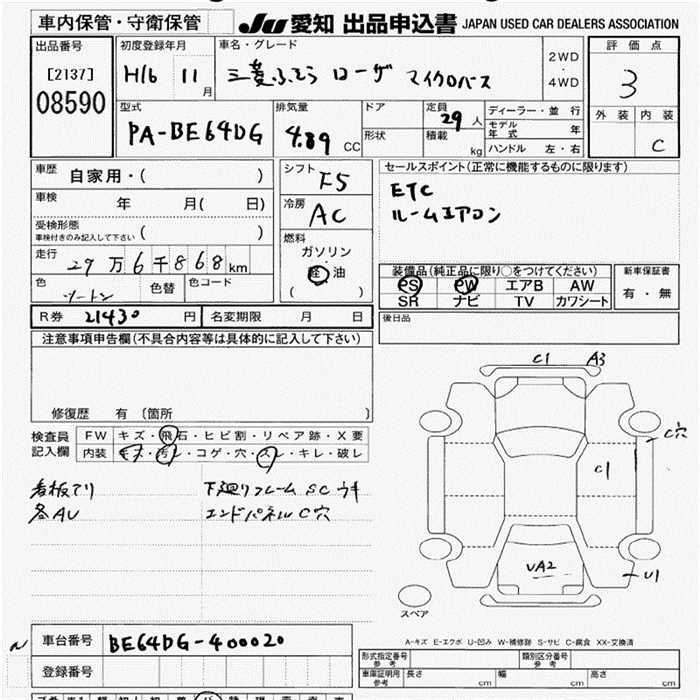 車内保管・守衛保管
JU 愛知 出品申込書 JAPAN USED CAR DEALERS ASSOCIATION
出品番号
[2137]
08590
初度登録年月
H16 11月
車名・グレード
三菱ふそう ローザ マイクロバス
2WD
・
4WD
評価点
3
外装 内装
C
型式
PA-BE64DG
排気量
4.89 CC
ドア
形状
定員
29人
積載
kg
ディーラー・並行
モデル年式 年
ハンドル 左・右
車歴
自家用・( )
車検
年 月( 日)
受検形態
車検付きのみ記入して下さい ( )
走行
29万6千868km
色
ツートン
色替
色コード
シフト
F5
冷房
AC
燃料
ガソリン
軽油
( )
セールスポイント(正常に機能するものに限ります)
ETC
ルームエアコン
装備品(純正品に限り○をつけてください)
PS PW エアB AW
SR ナビ TV カワシート
新車保証書
有・無
R券 21430 円
名変期限 月 日
後日品
注意事項申告欄(不具合内容等は具体的に記入して下さい)
修復歴 有 〔箇所 〕
検査員
記入欄
FW キズ・飛石・ヒビ割・リペア跡・X要
内装 キズ・汚レ・コゲ・穴・スレ・キレ・破レ
看板アリ
各AU
下廻りフレーム SC ウキ
エンドパネル C穴
C1 A3
C穴
C1
UA2
U1
スペア
A-キズ E-エクボ U-凹み W-補修跡 S-サビ C-腐食 XX-交換済
車台番号 BE64DG-400020
登録番号
形式指定番号
参考
類別区分番号
参考
車庫証明用
参考
長さ cm
幅 cm
高さ cm